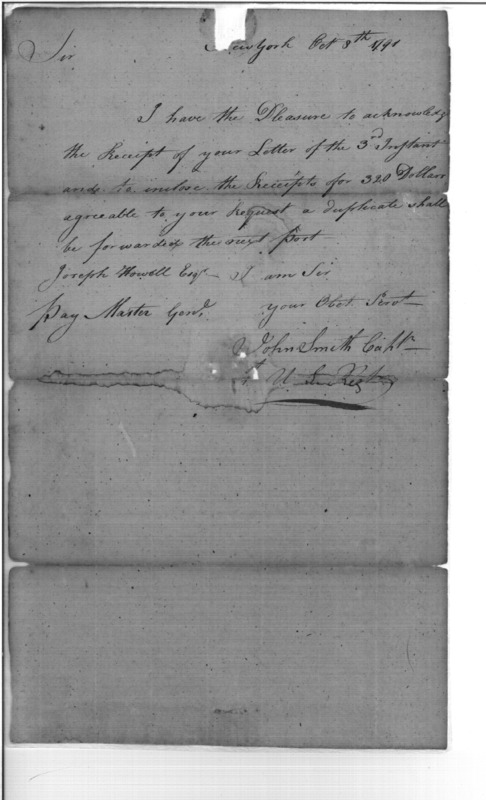 New York Oct 8th 1791
Sir
I have the Pleasure to acknowledge
the Receipt of your Letter of the 3rd Instant
and to inclose the Receipts for 320 Dollars
agreeable to your Request a duplicate shall
be forwarded the next Post
Joseph Howell Esqr I am Sir
Pay Master Genl. your Obet. Servt
John Smith Capt
U S Regt